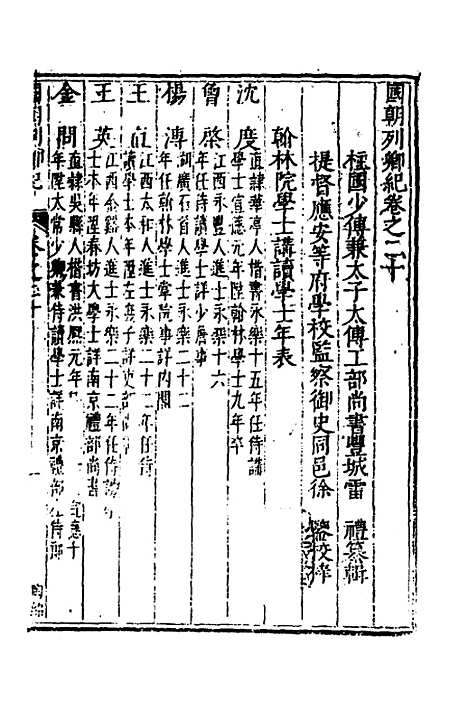 國朝列卿紀卷之二十
柱國少傅兼太子太傅工部尚書豐城雷 禮纂輯
提督應安等府學校監察御史同邑徐 鑒校梓
翰林院學士講讀學士年表
沈 度 直隷華亭人楷書永樂十五年任侍講
學士宣德元年陞翰林學士九年卒
曾 棨 江西永豐人進士永樂十六
年任侍講學士詳少詹事
楊 溥 湖廣石首人進士永樂二十二
年任翰林學士掌院事詳内閣
王 直 江西太和人進士永樂二十二年任侍
讀學士本年陞左庶子詳
王 英 江西金谿人進士永樂二十二年任侍講
士本年陞春坊大學士詳南京禮部尚書
金 問 直隷吳縣人楷書洪熙元年 宣德十
年陞太常少卿兼侍讀學士詳南京禮部侍郎
國朝列卿紀 卷之二十 一